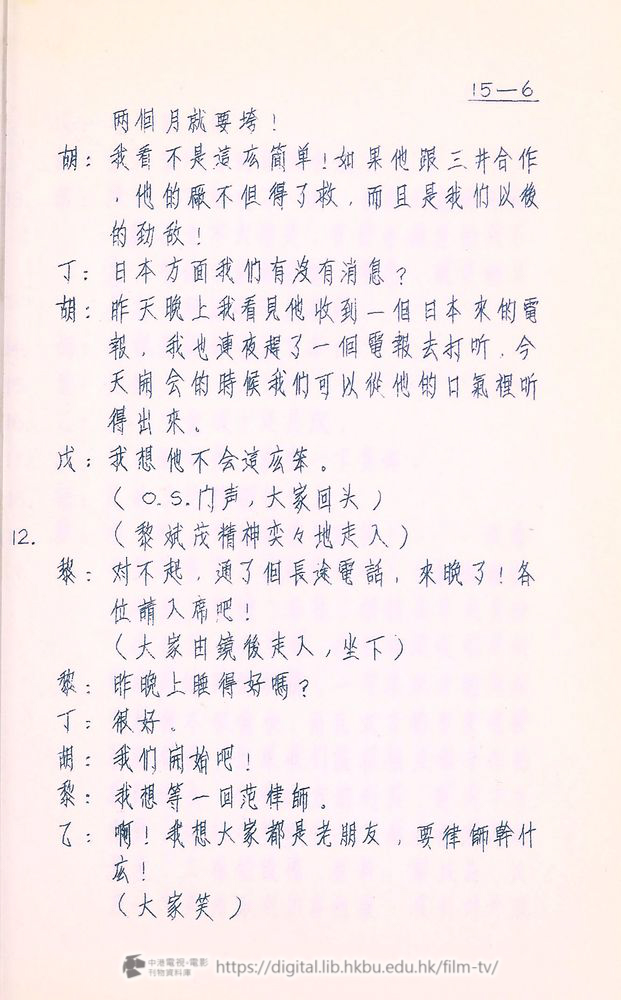 15—6
两個月就要垮！
胡：我看不是這広简单！如果他跟三井合作
，他的厰不但得了救，而且是我们以後
的劲敌！
丁：日本方面我们有没有消息？
胡：昨天晚上我看見他收到一個日本來的電
報，我也連夜趕了一個電報去打听，今
天開会的時候我们可以從他的口氣裡听
得出來。
戊：我想他不会這広笨。
（O.S.门声，大家回头）
12.（黎斌茂精神奕々地走入）
黎：对不起，通了個長途電話，來晚了！各
位請入席吧！
（大家由鏡後走入，坐下）
黎：昨晚上睡得好嗎？
丁：很好。
胡：我们開始吧！
黎：我想等一回范律師。
乙：啊！我想大家都是老朋友，要律師幹什
広！
（大家笑）
中港電視·電影
刊物資料庫
https://digital.lib.hkbu.edu.hk/film-tv/